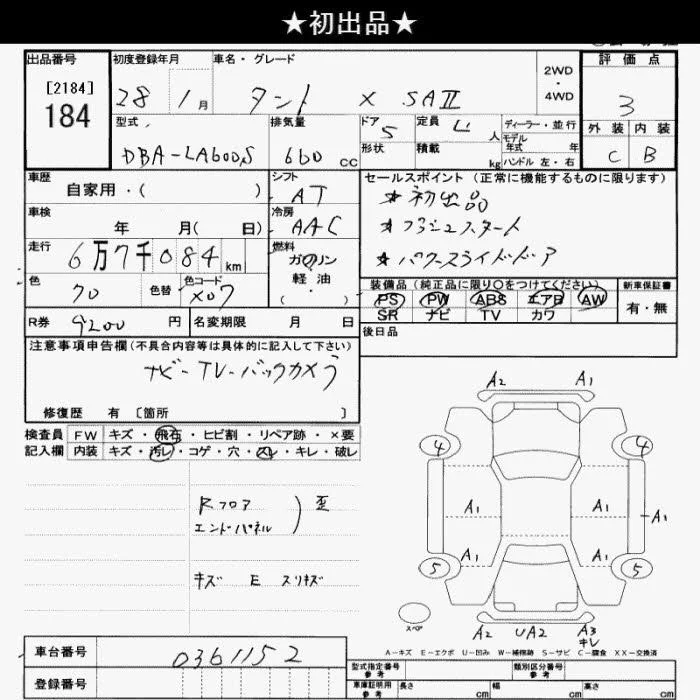 ★初出品★
出品番号
[2184]
184
初度登録年月
28年 1月
車名・グレード
タント X SAⅡ
2WD
・
4WD
評価点
3
外装 内装
C B
型式
DBA-LA600S
排気量
660 cc
ドア
5
形状
定員
4 人
積載
kg
ディーラー・並行
モデル
年式 年
ハンドル 左・右
車歴
自家用・( )
シフト
AT
セールスポイント(正常に機能するものに限ります)
★初出品
★プッシュスタート
★パワースライドドア
車検
年 月( 日)
冷房
AAC
走行
6万7千084 km
燃料
ガソリン
・
軽油
( )
色
クロ
色替
色コード
X07
装備品(純正品に限り○をつけてください)
PS PW ABS エアB AW
SR ナビ TV カワ
新車保証書
有・無
R券 9200 円
名変期限 月 日
後日品
注意事項申告欄(不具合内容等は具体的に記入して下さい)
ナビ-TV-バックカメラ
修復歴 有〔箇所 〕
検査員 FW キズ・飛石・ヒビ割・リペア跡・×要
記入欄 内装 キズ・汚レ・コゲ・穴・スレ・キレ・破レ
Rフロア
エンドパネル ) 歪
キズ E スリキズ
A2 A1
4 4
A1 A1 A1
A1 A1
5 5
スペア
A2 UA2 A3
キレ
A-キズ E-エクボ U-凹み W-補修跡 S-サビ C-腐食 XX-交換済
車台番号 0361152
登録番号
型式指定番号
参考
類別区分番号
参考
車庫証明用
参考
長さ cm 幅 cm 高さ cm